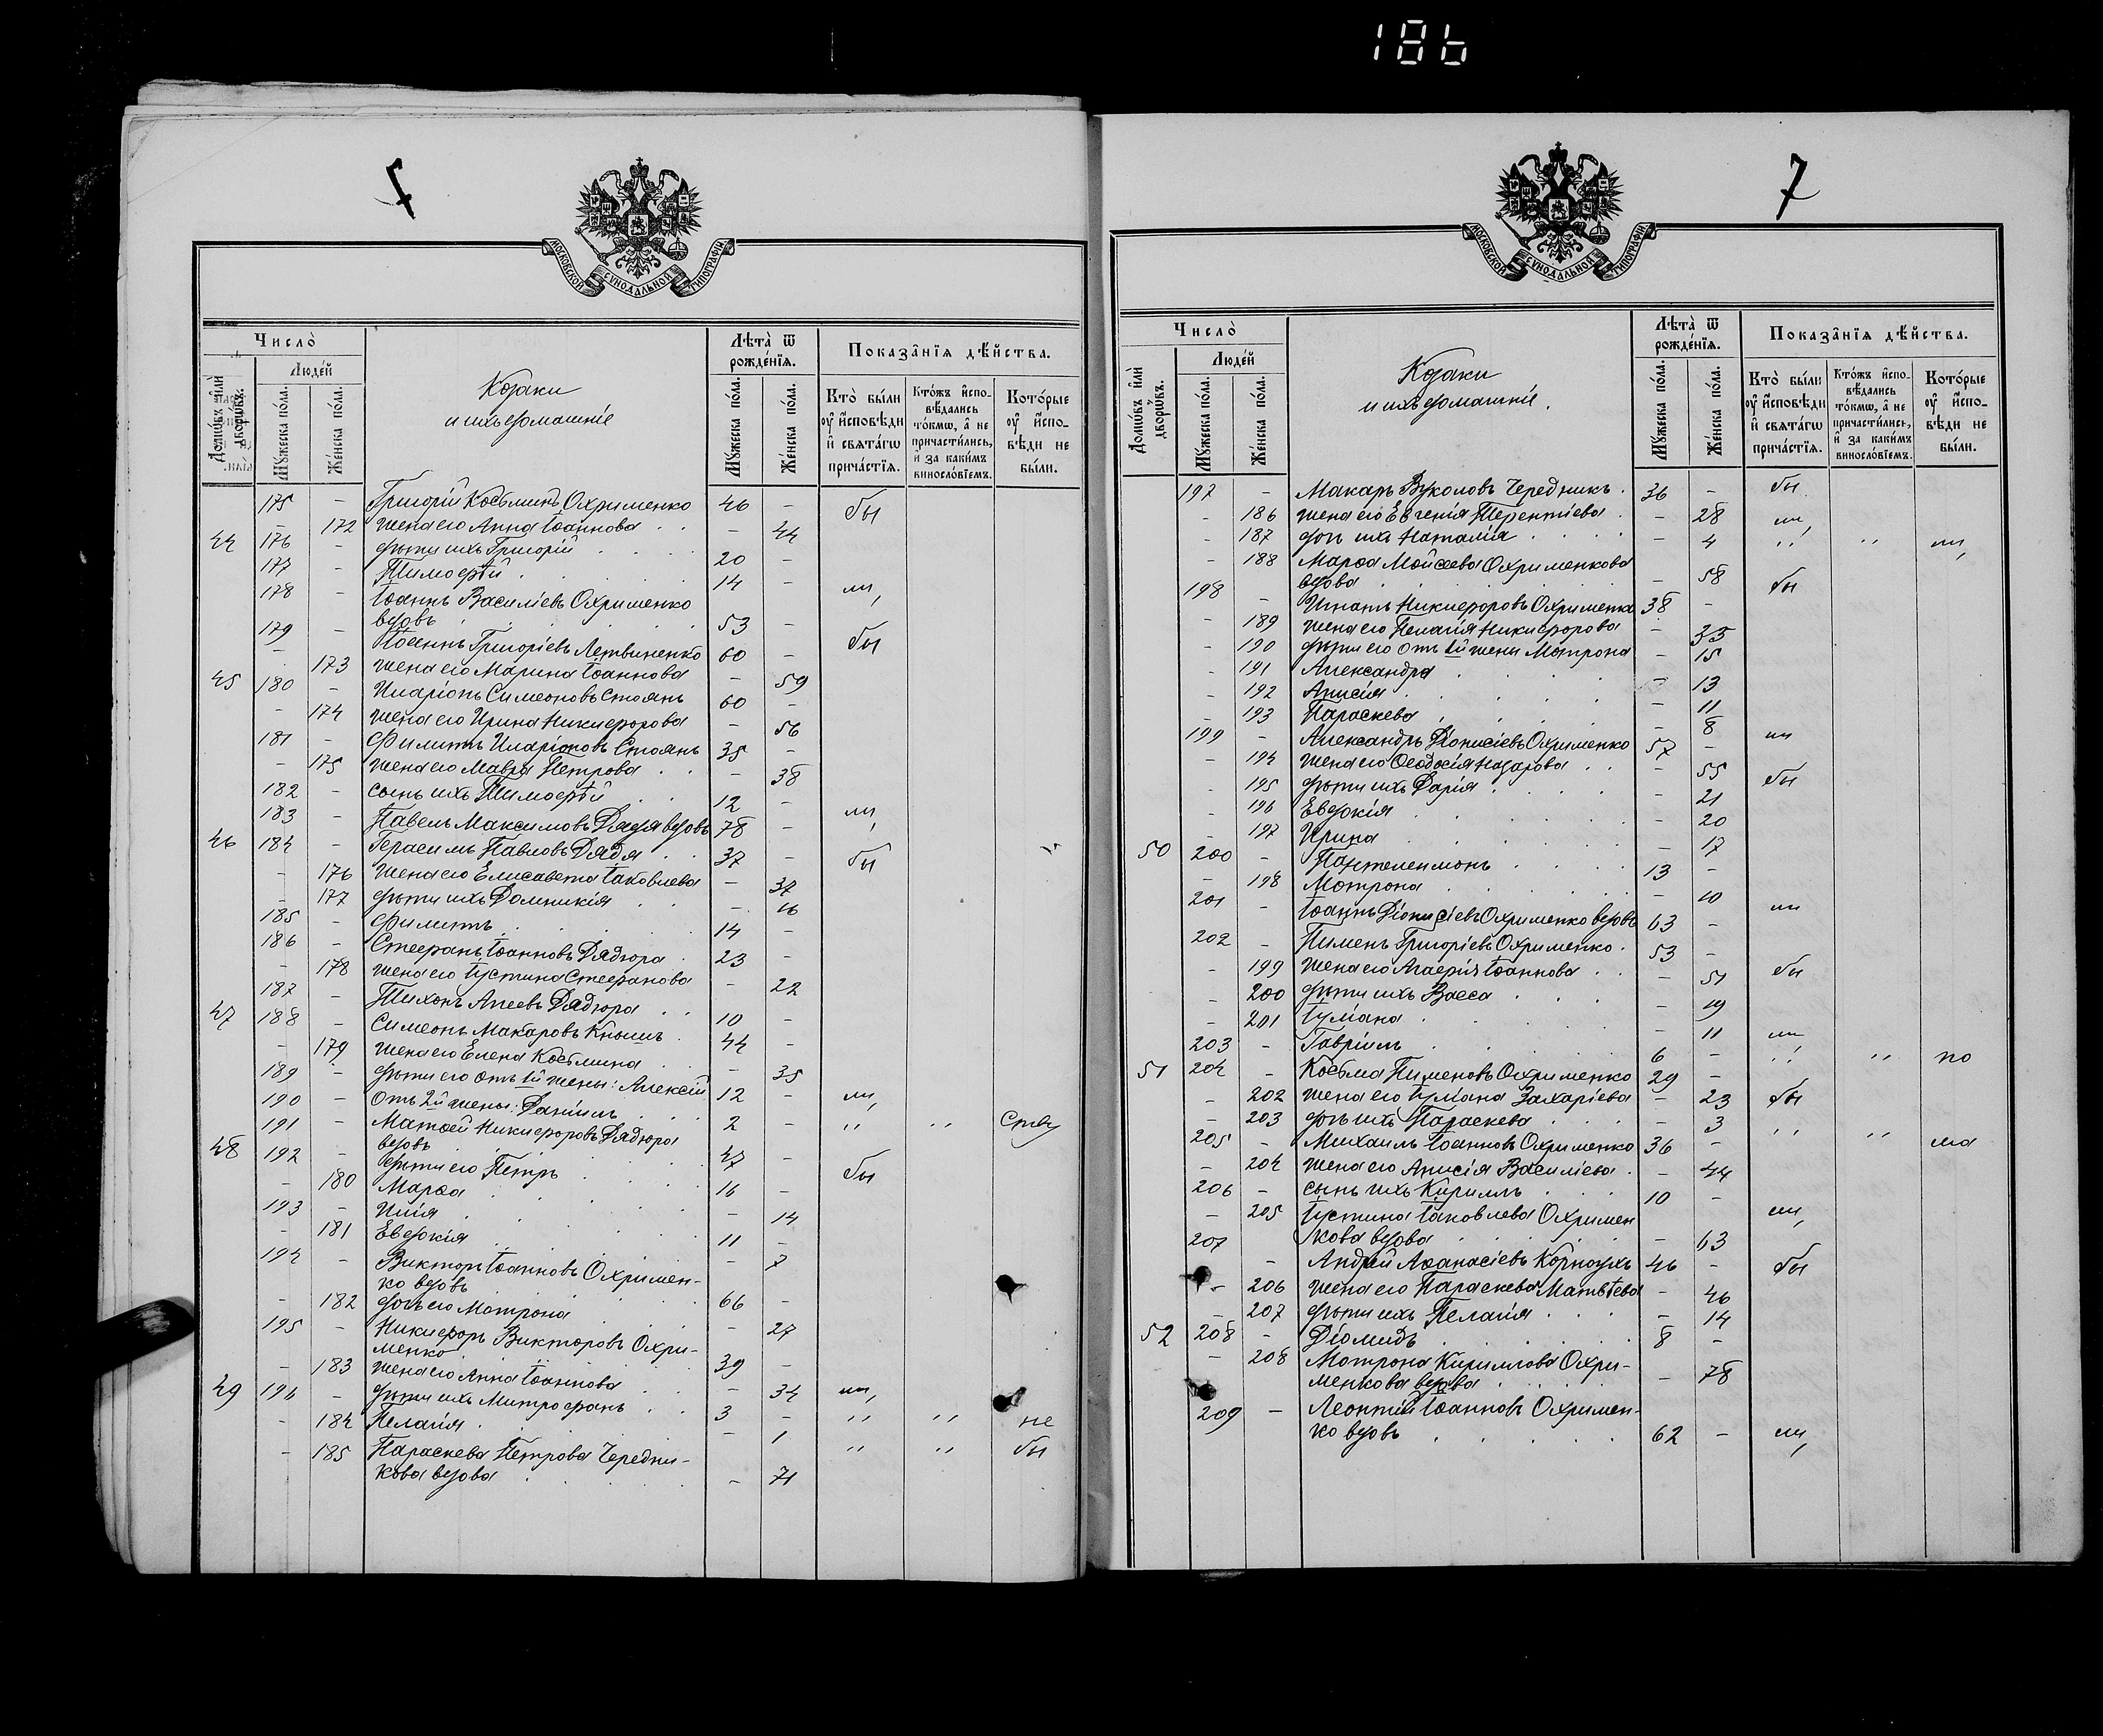 186
7
МОСКОВСКОЙ СѴНОДАЛЬНОЙ ТИПОГРАФІИ
Число̀
Людей
Домѡвъ или дворѡвъ.
Мꙋжеска пола.
Женска пола.
Козаки
и ихъ домашніе
Лѣта ѿ рожденїѧ.
Мꙋжеска пола.
Женска пола.
Показанїѧ дѣйства.
Кто были оу исповѣди и свѧтагѡ причастїѧ.
Ктожъ исповѣдались токмѡ, а не причастились, и за какимъ винословїемъ.
Которые оу исповѣди не были.
175 - Григорій Косьминъ Охрименко 46 - бы
- 172 жена его Анна Іоаннова - 44
44 176 - дѣти ихъ Григорій 20 -
177 - Тимоѳей 14 - ли,
178 - Іоаннъ Василіевъ Охрименко
вдовъ 53 - бы
179 - Іоаннъ Григоріевъ Летвиненко 60 -
- 173 жена его Марина Іоаннова - 59
45 180 - Иларіонъ Симеоновъ Стоянъ 60 -
- 174 жена его Ирина Никифорова - 56
181 - Филиппъ Иларіоновъ Стоянъ 35 -
- 175 жена его Мавра Петрова - 38
182 - сынъ ихъ Тимоѳей 12 - ли,
183 - Павелъ Максимовъ Дядя вдовъ 78 -
46 184 - Герасимъ Павловъ Дядя 37 - бы
- 176 жена его Елисавета Іаковлева - 37
- 177 дѣти ихъ Домникія - 16
185 - Филиппъ 14 -
186 - Стефанъ Іоанновъ Дядюра 23 -
- 178 жена его Іустина Стефанова - 22
187 - Тихонъ Дядюра 10 -
47 188 - Симеонъ Макаровъ Кнышъ 44 -
- 179 жена его Елена Косьмина - 35
189 - дѣти его отъ 1й жены: Алексій 12 - ли,
190 - Отъ 2й жены: Даніилъ 2 - ,, ,,
191 - Матѳей Никифоровъ Дядюра
вдовъ 47 -
48 192 - дѣти его Петръ 16 - бы
- 180 Марѳа - 14
193 - Илія 11 -
- 181 Евдокія - 7
194 - Викторъ Іоанновъ Охримен-
ко вдовъ 66 -
- 182 дочь его Мотрона - 27
195 - Никифоръ Викторовъ Охри-
менко 39 -
- 183 жена его Анна Іоаннова - 34 ли,
49 196 - дѣти ихъ Митрофанъ 3 - ,, ,, не
- 184 Пелагія - 1 ,, ,, бы
- 185 Параскева Петрова Чередни-
кова вдова - 71
7
МОСКОВСКОЙ СѴНОДАЛЬНОЙ ТИПОГРАФІИ
Число̀
Людей
Домѡвъ или дворѡвъ.
Мꙋжеска пола.
Женска пола.
Козаки
и ихъ домашніе.
Лѣта ѿ рожденїѧ.
Мꙋжеска пола.
Женска пола.
Показанїѧ дѣйства.
Кто были оу исповѣди и свѧтагѡ причастїѧ.
Ктожъ исповѣдались токмѡ, а не причастились, и за какимъ винословїемъ.
Которые оу исповѣди не были.
197 - Макаръ Вуколовъ Чередникъ 36 - бы
- 186 жена его Евгенія Терентіева - 28 ли,
- 187 дочь ихъ Наталія - 4 ,, ,, ли,
- 188 Марѳа Мойсеева Охрименкова
вдова - 58 бы
198 - Игнатъ Никифоровъ Охрименко 38 -
- 189 жена его Пелагія Никифорова - 35
- 190 дѣти его отъ 1й жены Мотрона - 15
- 191 Александра - 13
- 192 Анисія - 11
- 193 Параскева - 8
199 - Александръ Діонисіевъ Охрименко 57 - ли
- 194 жена его Ѳеодосія Назарова - 55
- 195 дѣти ихъ Дарія - 21 бы
- 196 Евдокія - 20
- 197 Ирина - 17
50 200 - Пантелеимонъ 13 -
- 198 Мотрона - 10
201 - Іоаннъ Діонисіевъ Охрименко вдовъ 63 - ли
202 - Пименъ Григоріевъ Охрименко 53 -
- 199 жена его Агафія Іоаннова - 51 бы
- 200 дѣти ихъ Васса - 19
- 201 Іуліана - 11
203 - Гавріилъ 6 - ли
,, ,, по
51 204 - Косьма Пименовъ Охрименко 29 -
- 202 жена его Іуліана Захаріева - 23 бы
- 203 дочь ихъ Параскева - 3 ,, ,, ма
205 - Михаилъ Іоанновъ Охрименко 36 -
- 204 жена его Анисія Василіева - 44
206 - сынъ ихъ Кириллъ 10 -
- 205 Іустина Іаковлева Охримен
кова вдова - 63 ли,
207 - Андрей Аѳанасіевъ Корноухъ 46 - бы
- 206 жена его Параскева Матвѣева - 46
- 207 дѣти ихъ Пелагія - 14
52 208 - Діомидъ 8 -
- 208 Мотрона Кириллова Охри-
менкова вдова - 78
209 - Леонтій Іоанновъ Охримен-
ко вдовъ 62 - ли,